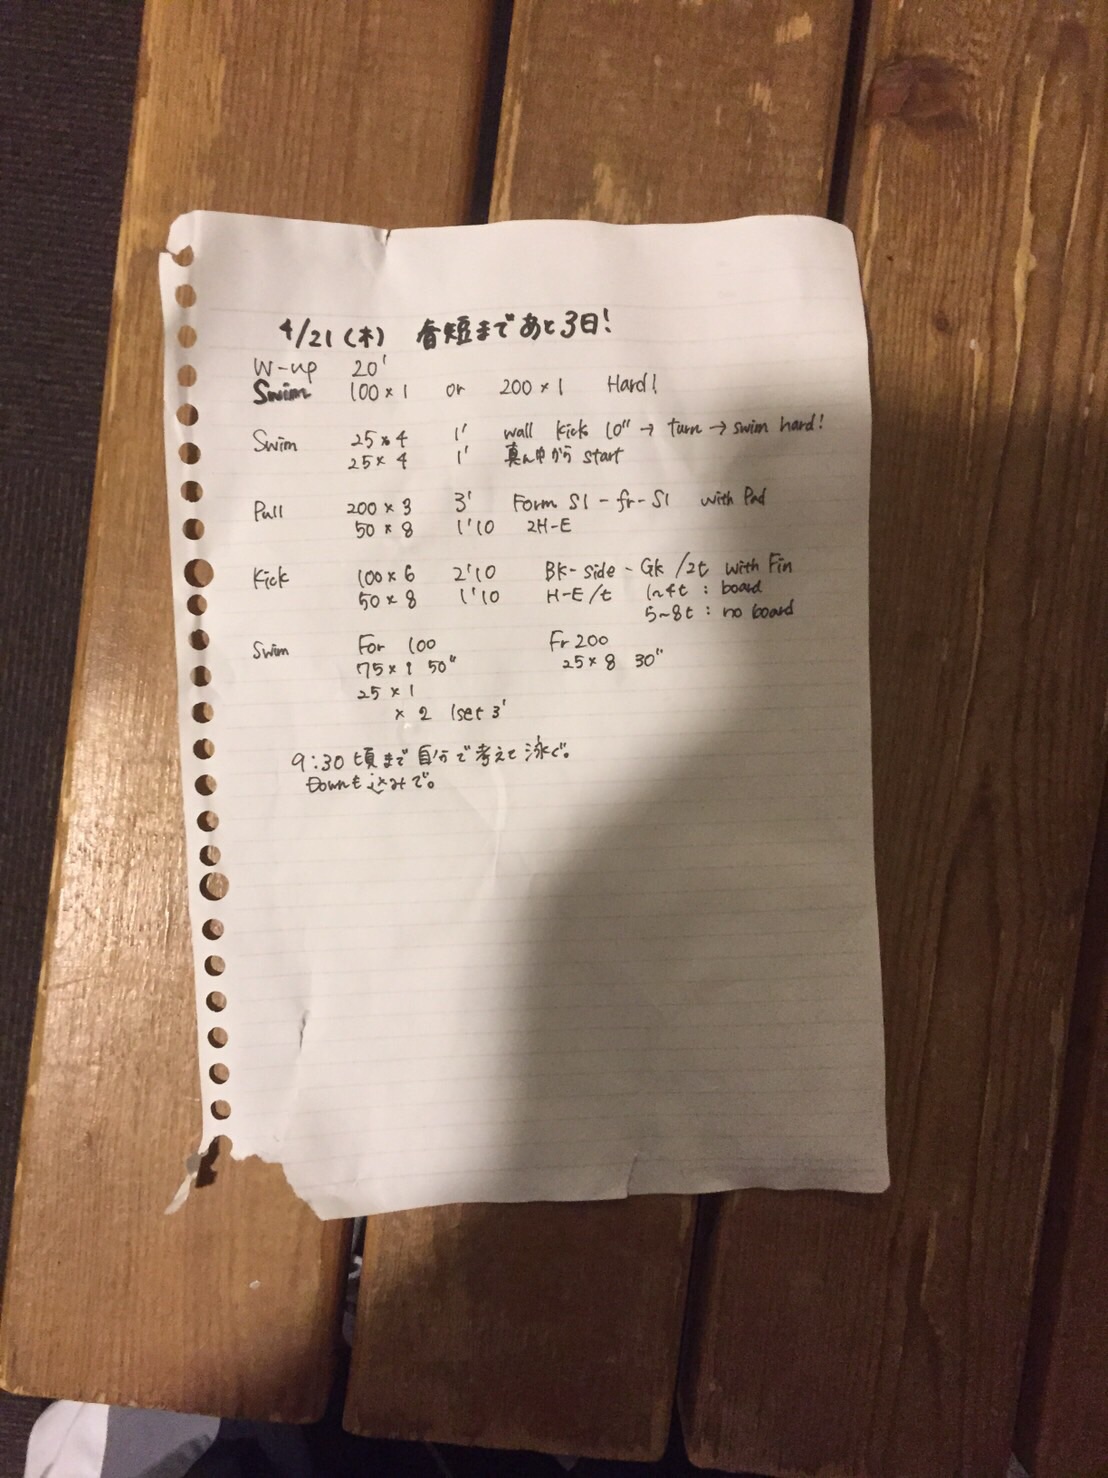 4/21(木) 春短まであと3日!
W-up 20'
Swim 100×1 or 200×1 Hard!
Swim 25×4 1' wall kick 10" → turn → swim hard!
25×4 1' 真ん中から start
Pull 200×3 3' Form S1-fr-S1 with Pad
50×8 1'10 2H-E
Kick 100×6 2'10 BK-side-Gk/2t with Fin
50×8 1'10 H-E/t 1~4t : board
5~8t : no board
Swim For 100 Fr 200
75×1 50" 25×8 30"
25×1
×2 1set 3'
9:30頃まで自分で考えて泳ぐ。
Downも込みで。